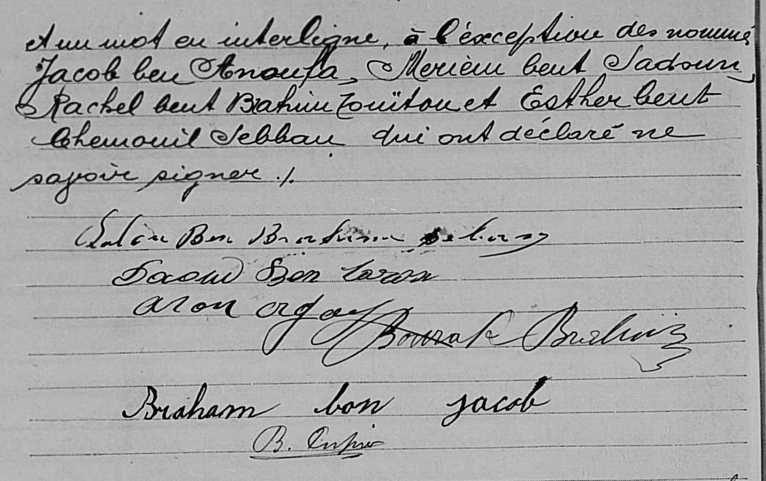 et un mot en interligne, à l'exception des nommés
Jacob ben Anoufa, Meriem bent Sadoun,
Rachel bent Brahim Zouïtou et Esther bent
Chemouil Sebban qui ont déclaré ne
savoir signer ./.
Ben Brahim
Daoud Ben Aaron
aron
Bourak Brahim
Braham ben jacob
B.